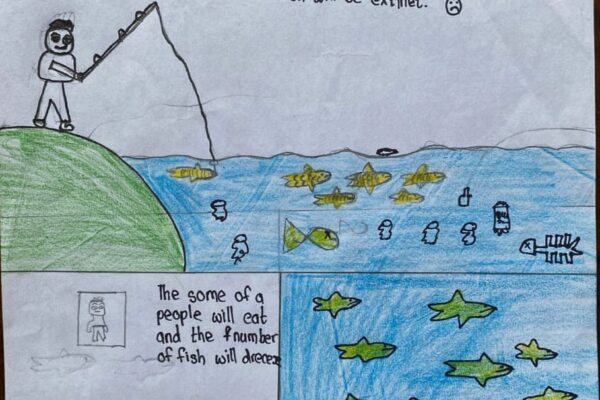 will be extinct.
The some of a
people will eat
and the number
of fish will